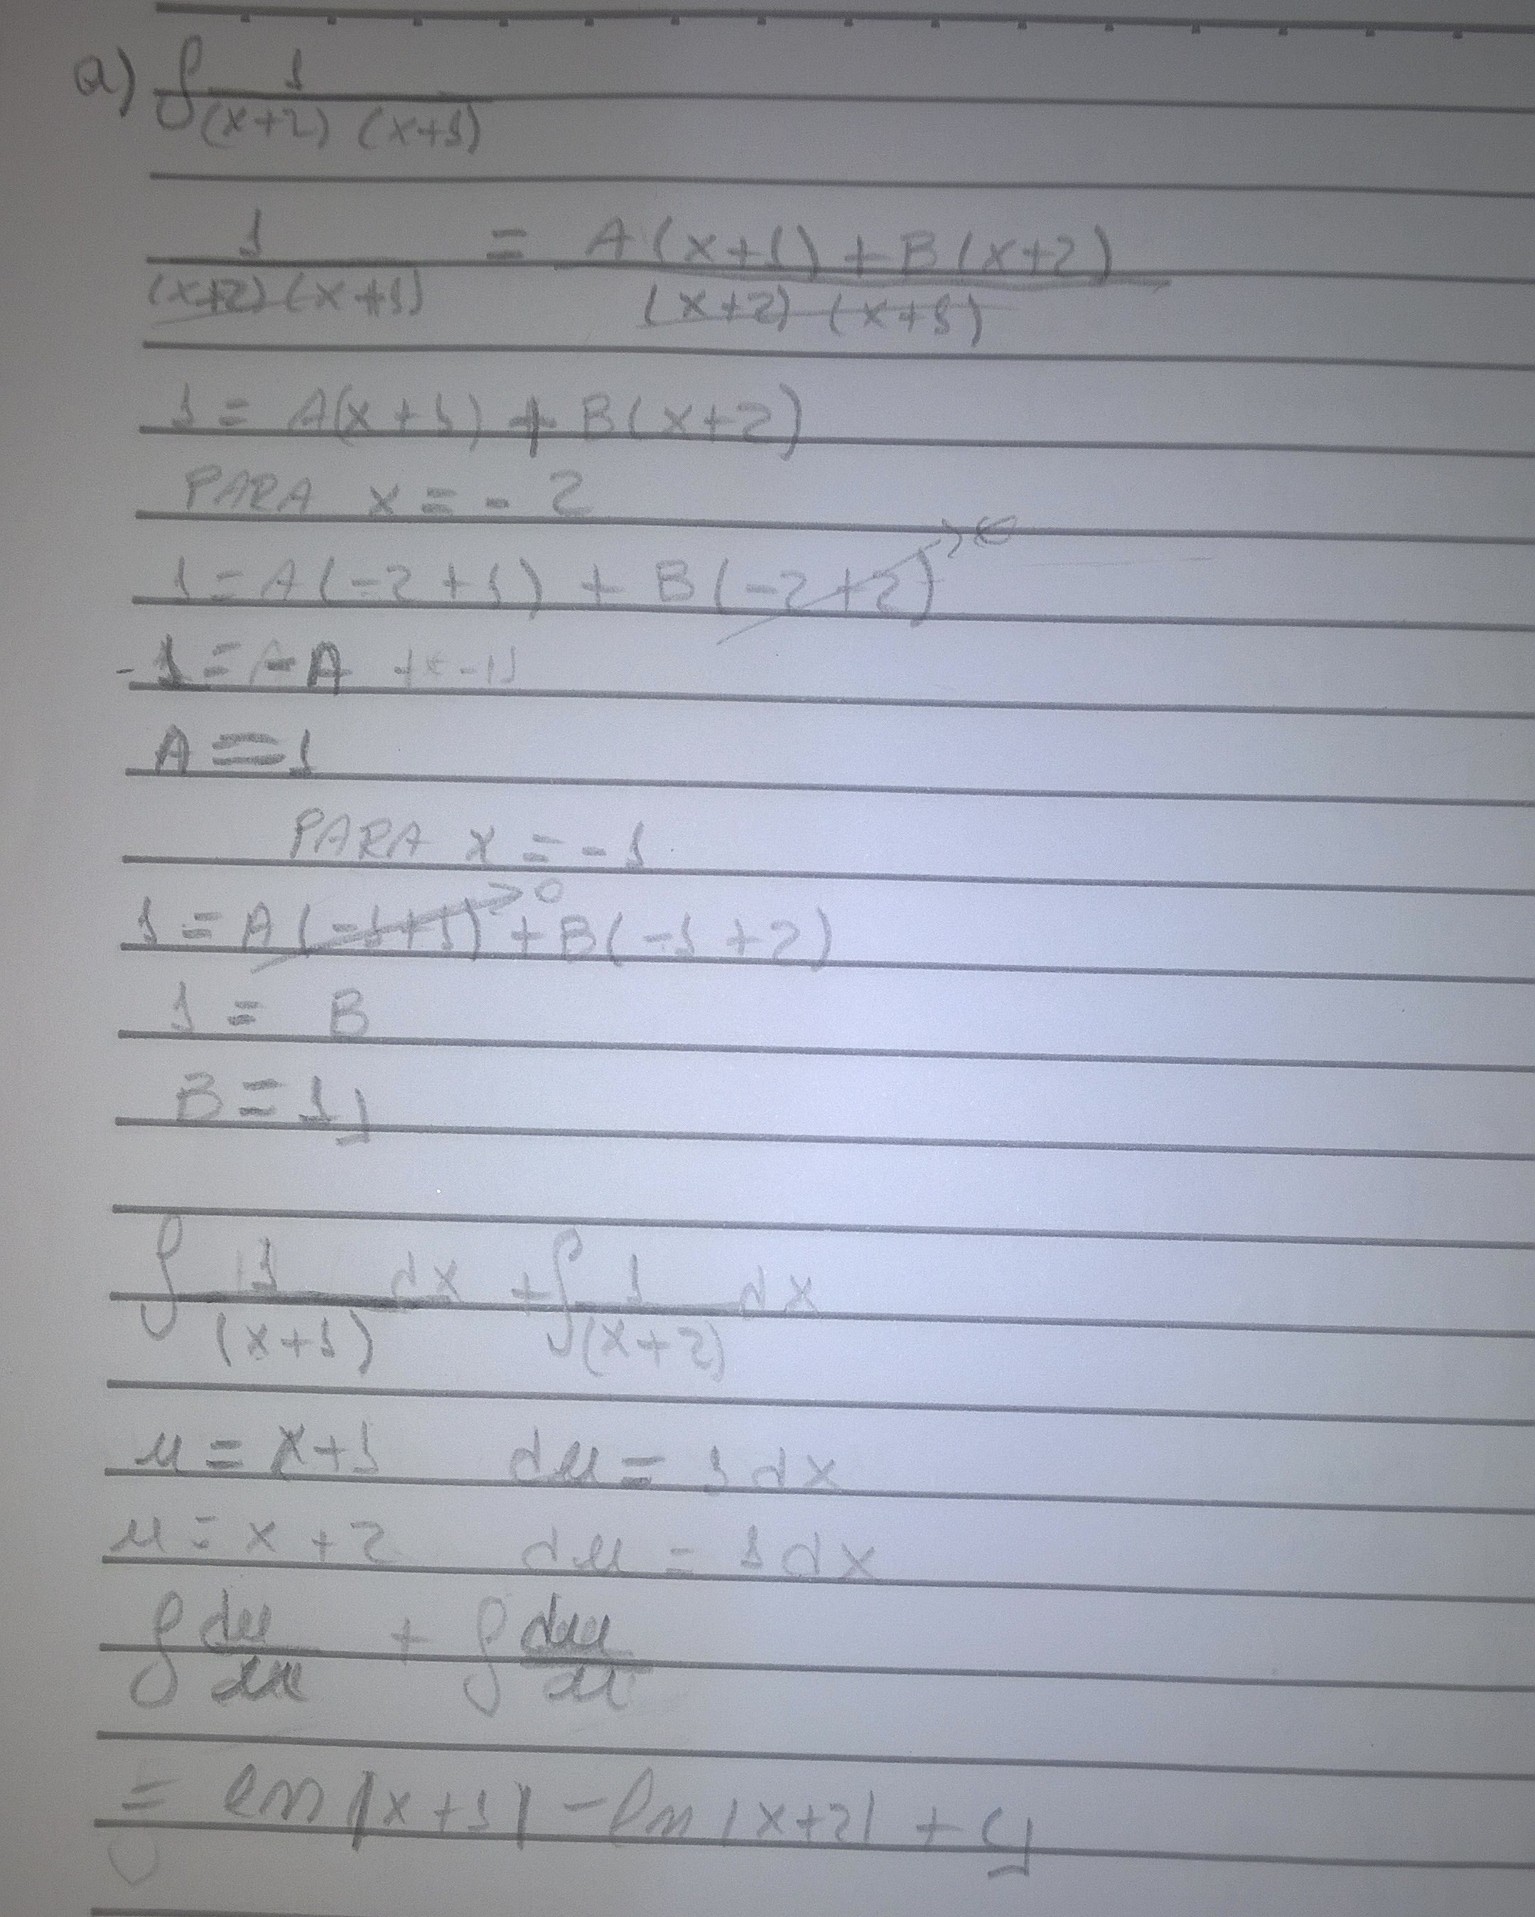 a) ∫ 1 / (x+2) (x+1)
1 / (x+2) (x+1) = A(x+1) + B(x+2) / (x+2) (x+1)
1 = A(x+1) + B(x+2)
PARA x = - 2
1 = A(-2+1) + B(-2+2)→0
-1 = -A
A = 1
PARA x = - 1
1 = A(-1+1)→0 + B(-1+2)
1 = B
B = 1
∫ 1 / (x+1) dx + ∫ 1 / (x+2) dx
u = x+1 du = 1dx
u = x+2 du = 1dx
∫ du/u + ∫ du/u
= ln|x+1| - ln|x+2| + C